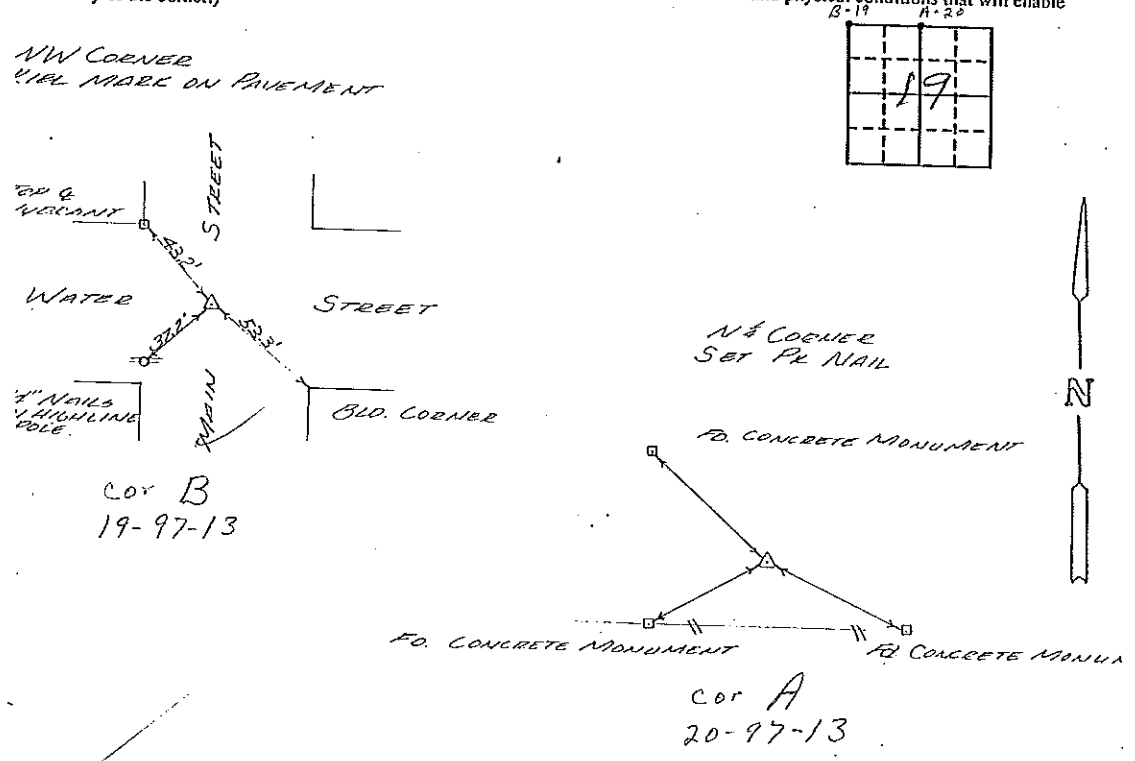 and physical conditions that will enable
B-19 A-20
19
NW CORNER
MARK ON PAVEMENT
STREET
43.2'
WATER STREET
37.2' 52.3'
MAIN
NAILS
HIGHLINE
POLE.
BLD. CORNER
cor B
19-97-13
N¼ CORNER
SET PK NAIL
N
FD. CONCRETE MONUMENT
FD. CONCRETE MONUMENT
Fd CONCRETE
cor A
20-97-13